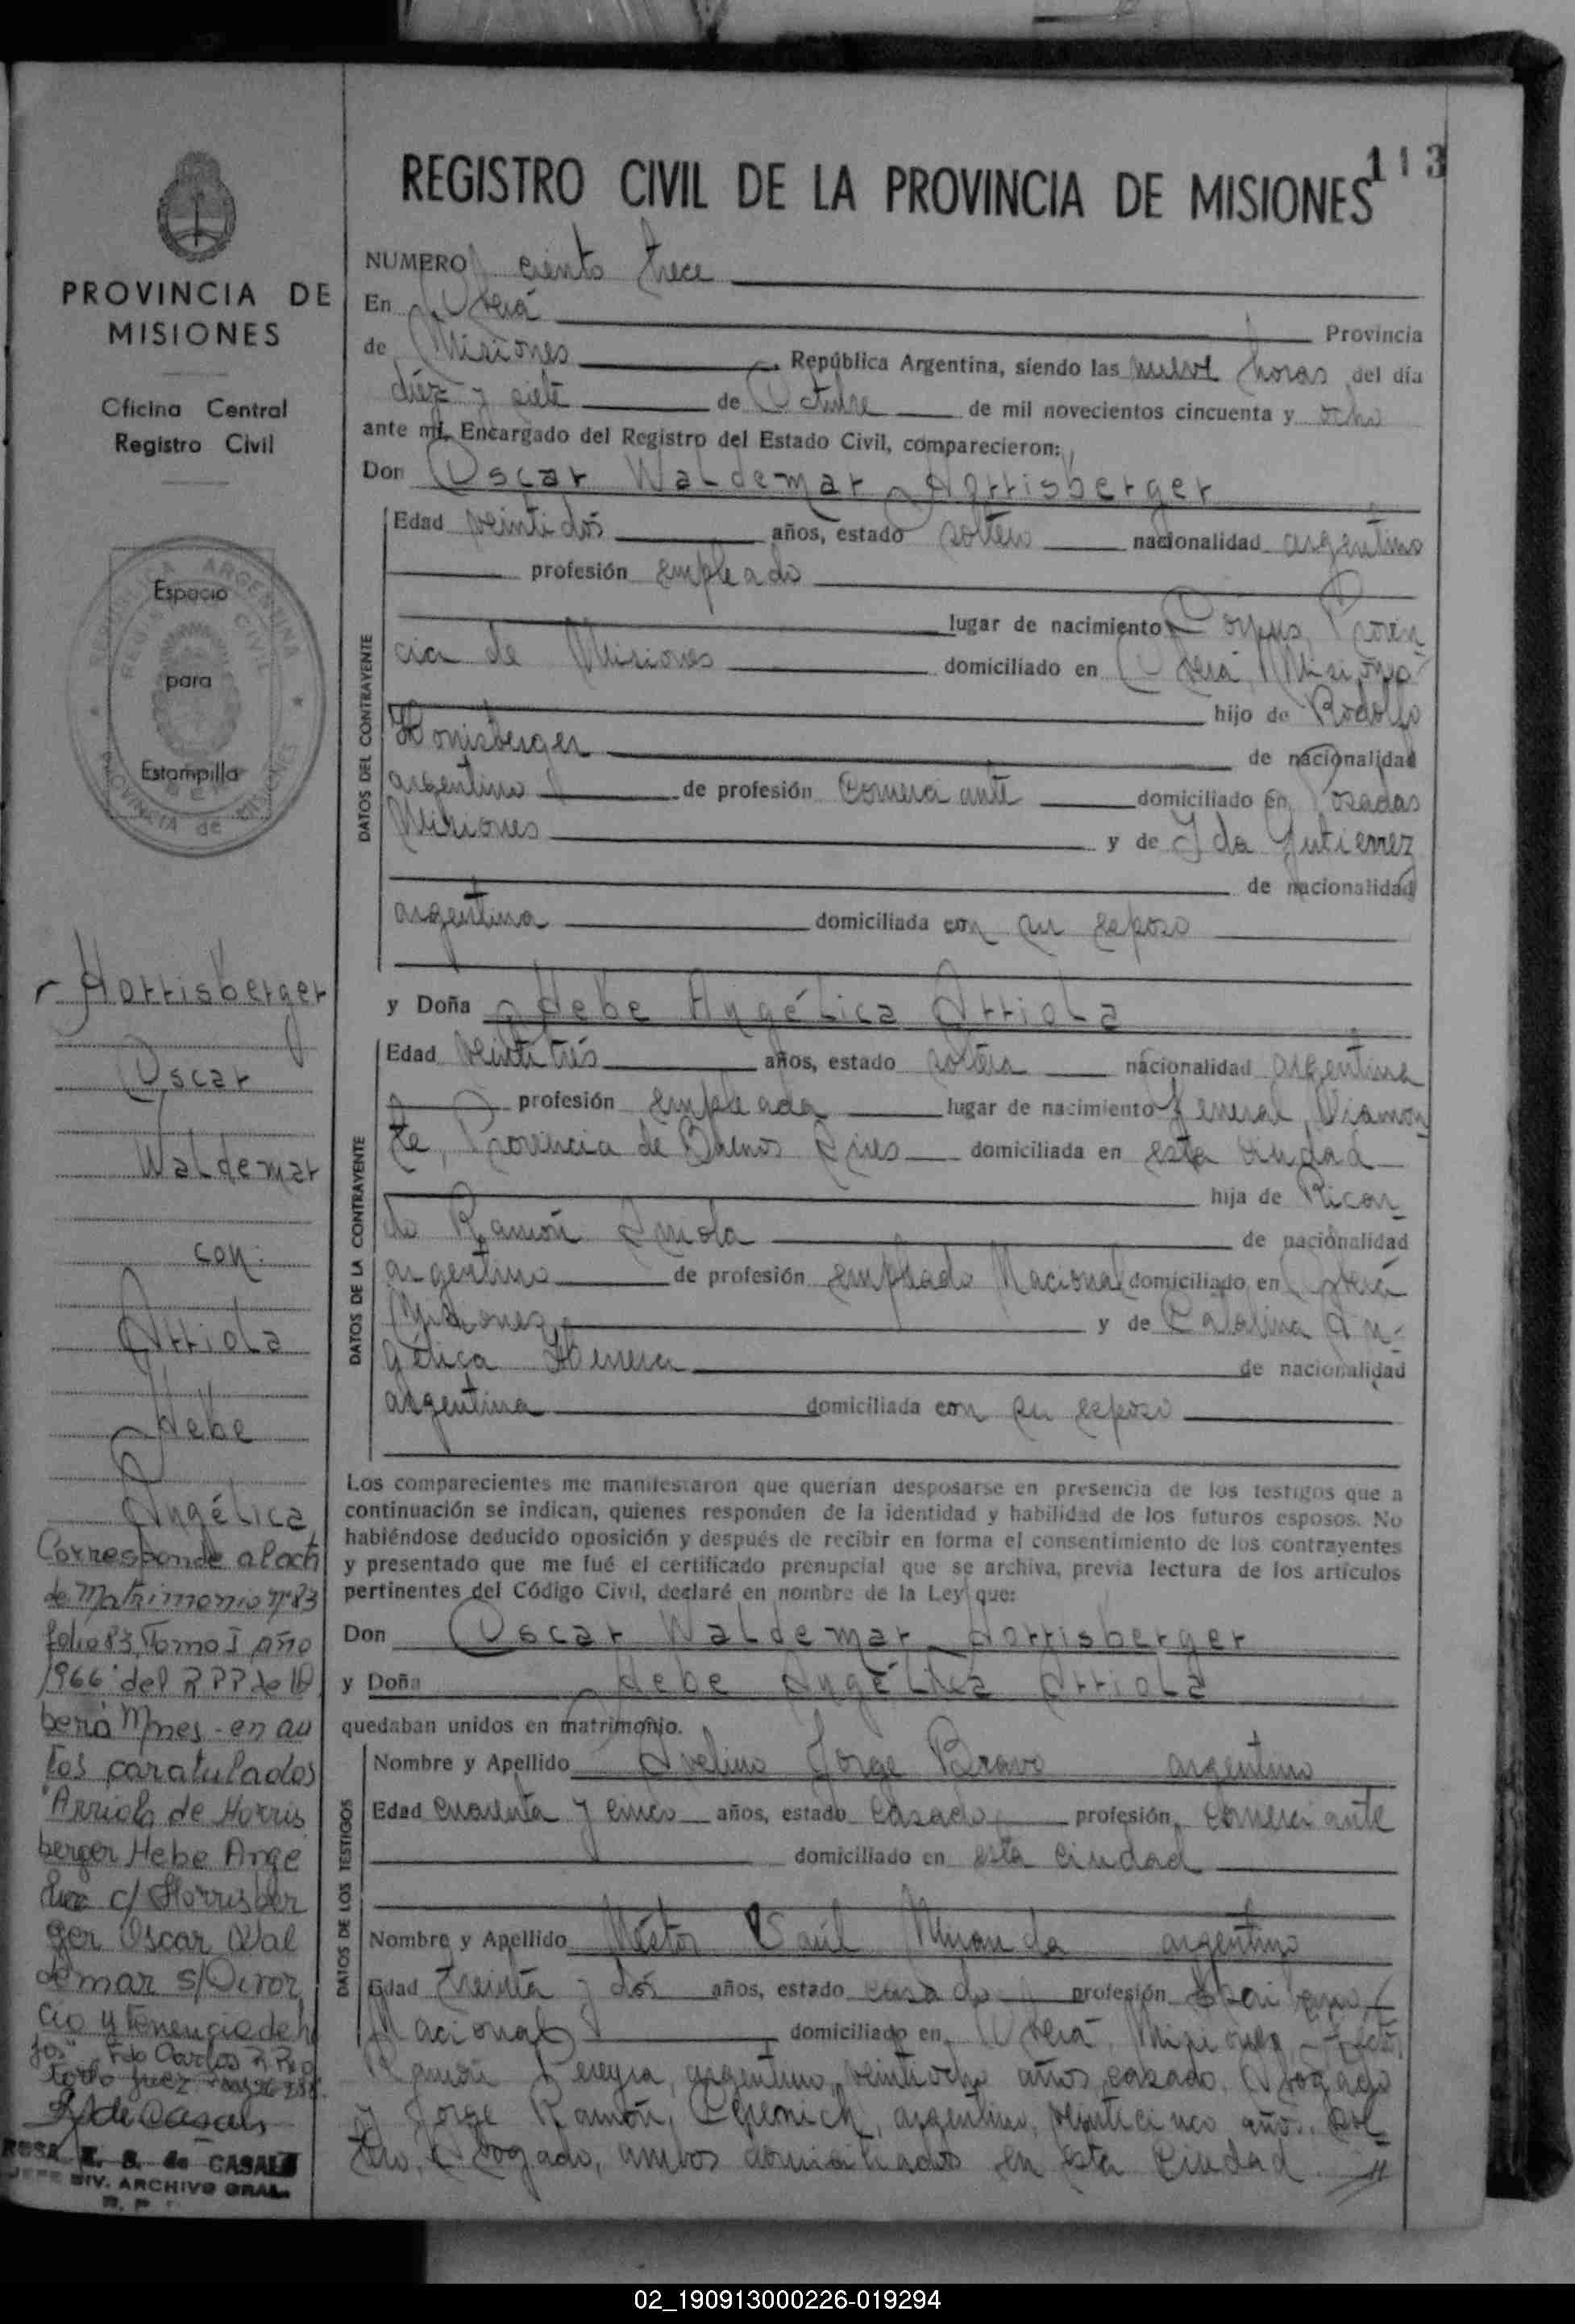 113
REGISTRO CIVIL DE LA PROVINCIA DE MISIONES
PROVINCIA DE
MISIONES
Oficina Central
Registro Civil
Espacio
para
Estampilla
Horrisberger
Oscar
Waldemar
con:
Arriola
Hebe
Angélica
Corresponde al acta
de Matrimonio nº 83
folio 83, Tomo I año
1966 del RPP de
Mnes - en au
tos caratulados
"Arriola de Horris
berger Hebe Ange
lica c/ Horrisber
ger Oscar Wal
demar s/Divor
cio y tenencia de hi
jos" Fdo Carlos
Juez
ROSA E. B. de CASALS
JEFE DIV. ARCHIVO GRAL.
NUMERO ciento trece
En Oberá Provincia
de Misiones, República Argentina, siendo las nueve horas del día
diez y siete de Octubre de mil novecientos cincuenta y ocho
ante mí, Encargado del Registro del Estado Civil, comparecieron:
Don Oscar Waldemar Horrisberger
DATOS DEL CONTRAYENTE
Edad veintidós años, estado soltero nacionalidad argentino
profesión empleado
lugar de nacimiento Corpus, Provin-
cia de Misiones domiciliado en Oberá, Misiones
hijo de Rodolfo
Horrisberger de nacionalidad
argentino de profesión Comerciante domiciliado en Posadas
Misiones y de Ida Gutierrez
de nacionalidad
argentina domiciliada con su esposo
y Doña Hebe Angélica Arriola
DATOS DE LA CONTRAYENTE
Edad veintitrés años, estado soltera nacionalidad argentina
profesión empleada lugar de nacimiento General Viamon
te, Provincia de Buenos Aires domiciliada en esta ciudad
hija de Ricar-
do Ramón Arriola de nacionalidad
argentino de profesión empleado Nacional domiciliado en Oberá
Misiones y de Catalina An-
gélica Herrera de nacionalidad
argentina domiciliada con su esposo
Los comparecientes me manifestaron que querían desposarse en presencia de los testigos que a
continuación se indican, quienes responden de la identidad y habilidad de los futuros esposos. No
habiéndose deducido oposición y después de recibir en forma el consentimiento de los contrayentes
y presentado que me fué el certificado prenupcial que se archiva, previa lectura de los artículos
pertinentes del Código Civil, declaré en nombre de la Ley que:
Don Oscar Waldemar Horrisberger
y Doña Hebe Angélica Arriola
quedaban unidos en matrimonio.
DATOS DE LOS TESTIGOS
Nombre y Apellido Avelino Jorge Bravo argentino
Edad cuarenta y cinco años, estado casado, profesión comerciante
domiciliado en esta ciudad
Nombre y Apellido Néstor Saúl Miranda argentino
Edad treinta y dos años, estado casado profesión
Nacional domiciliado en Oberá, Misiones
Ramón Pereyra, argentino, veintiocho años, casado, Abogado
y Jorge Ramón, argentino, veinticinco años, sol-
tero, Abogado, ambos domiciliados en esta Ciudad. //
02_190913000226-019294